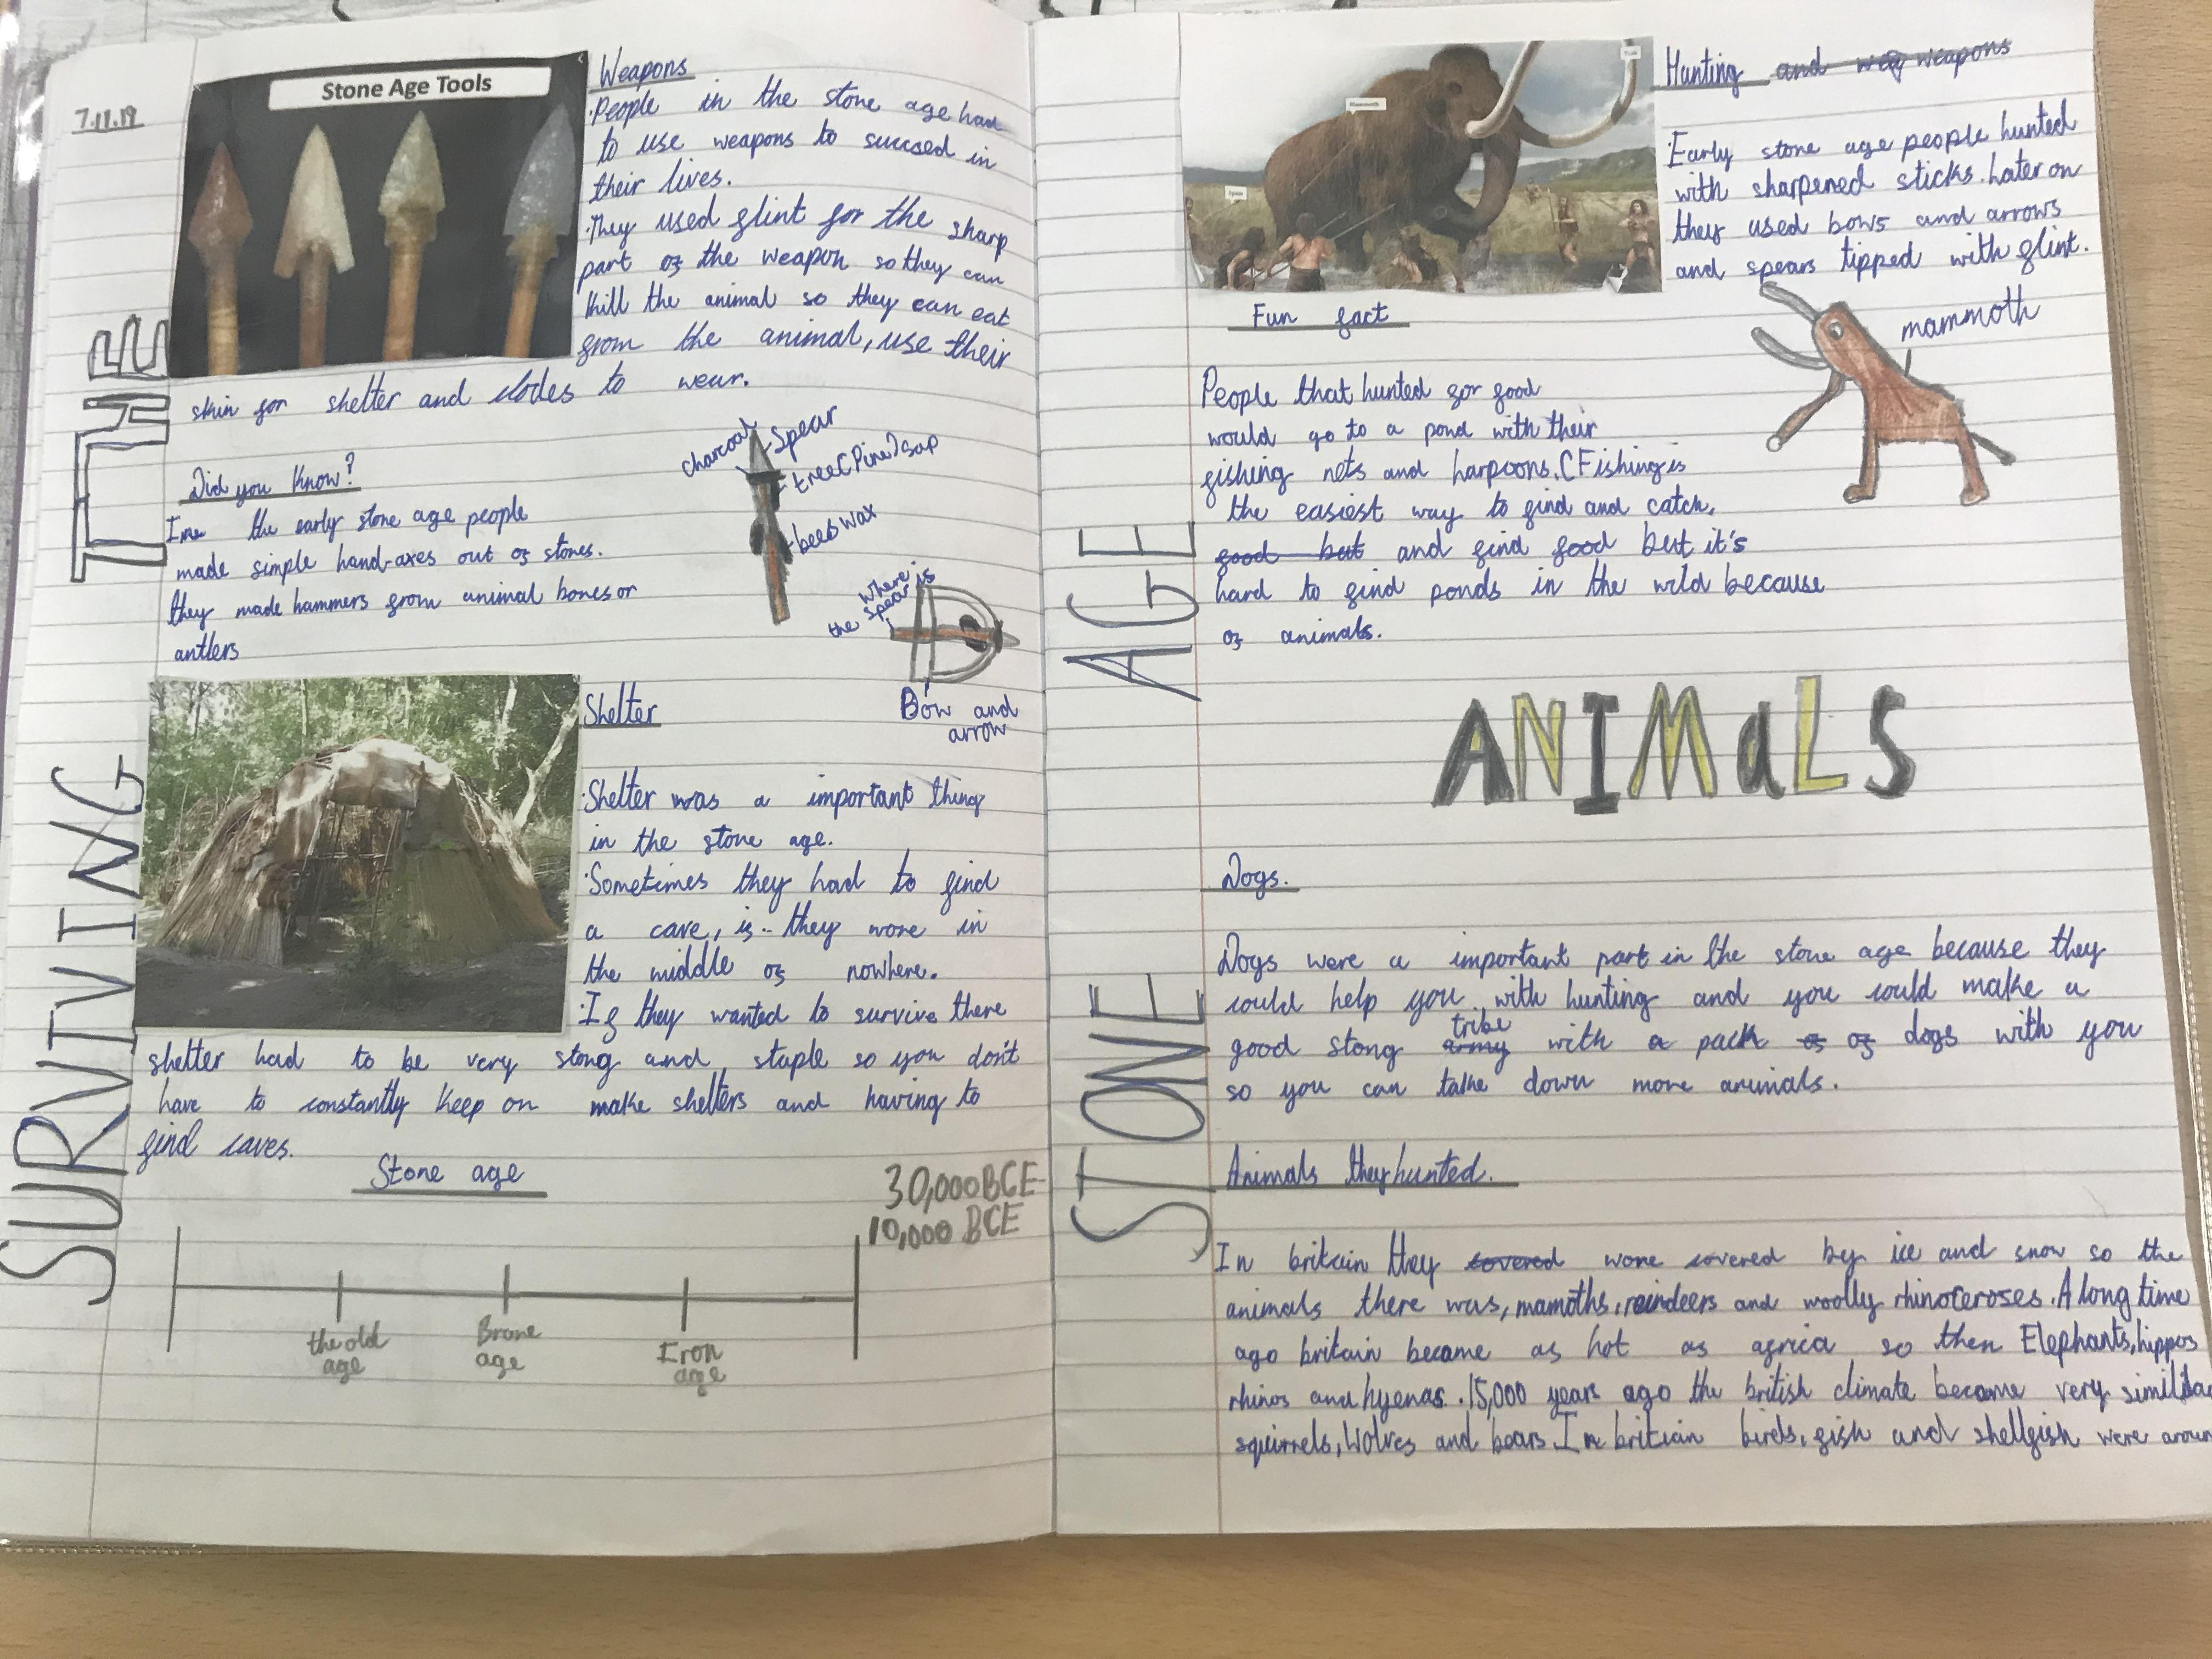 7.11.19
SURVIVING THE
Stone Age Tools
Weapons
·People in the stone age had
to use weapons to succsed in
their lives.
·They used flint for the sharp
part of the weapon so they can
kill the animal so they can eat
from the animal, use their
skin for shelter and clodes to wear.
Did you know?
the early stone age people
made simple hand-axes out of stones.
they made hammers from animal bones or
antlers
charcoal
Spear
tree(Pine)sap
bees wax
where is
the spear
Bow and
arrow
Shelter
·Shelter was a important thing
in the stone age.
·Sometimes they had to find
a cave, if they wore in
the middle of nowhere.
·If they wanted to survive there
shelter had to be very stong and staple so you don't
have to constantly keep on make shelters and having to
find caves.
Stone age
30,000 BCE
10,000 BCE
the old
age
Brone
age
Iron
age
STONE AGE
Mammoth
Spear
Tusk
Hunting and weapons
Early stone age people hunted
with sharpened sticks. Later on
they used bows and arrows
and spears tipped with flint.
mammoth
Fun fact
People that hunted for food
would go to a pond with their
fishing nets and harpoons.(Fishing is
the easiest way to find and catch.
food but and find food but it's
hard to find ponds in the wild because
of animals.
ANIMaLS
Dogs.
Dogs were a important part in the stone age because they
could help you with hunting and you could make a
good stong army tribe with a pack of of dogs with you
so you can take down more animals.
Animals they hunted.
In britain they covered wore covered by ice and snow so the
animals there was, mamoths, reindeers and woolly rhinoceroses. A long time
ago britain became as hot as africa so then Elephants, hippos
rhinos and hyenas. 15,000 years ago the british climate become very
squirrels, Wolves and bears. In britian birds, fish and shellfish were